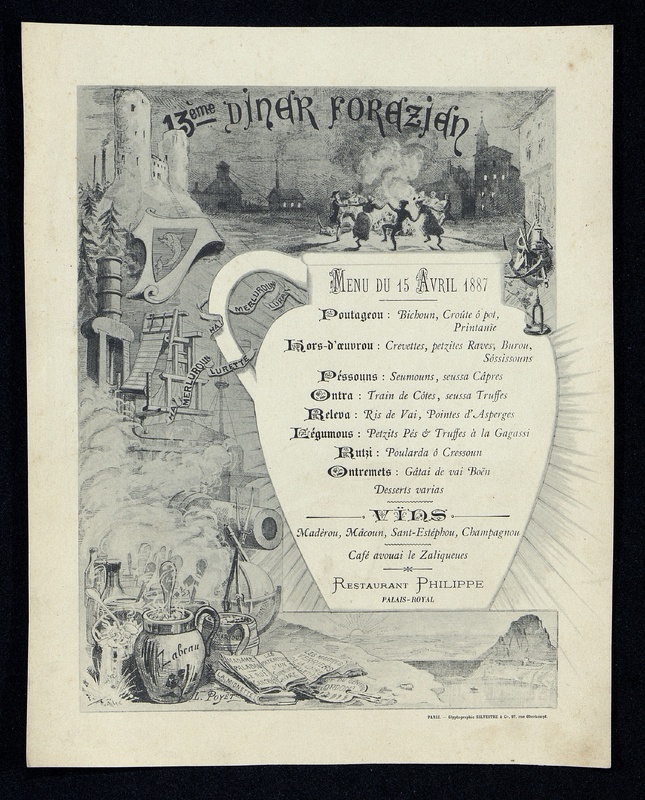 13ème DINER FOREZIEN
MENU DU 15 AVRIL 1887
Poutageou : Bichoun, Croûte ô pot,
Printanie
Hors-d'œuvrou : Crevettes, petzites Raves, Burou,
Sôssissouns
Péssouns : Seumouns, seussa Câpres
Ontra : Train de Côtes, seussa Truffes
Releva : Ris de Vai, Pointes d'Asperges
Légumous : Petzits Pés & Truffes à la Gagassi
Rutzi : Poularda ô Cressoun
Ontremets : Gâtai de vai Boën
Desserts varias
VÏNS
Madèrou, Mâcoun, Sant-Estéphou, Champagnou
Café avouai le Zaliqueues
RESTAURANT PHILIPPE
PALAIS-ROYAL
HA! MERLUROUN LURETTE
HA! MERLUROUN LURA
Zabeau
L. POYET
PARIS. - Glyptographie SILVESTRE & Cie, 97, rue Oberkampf.